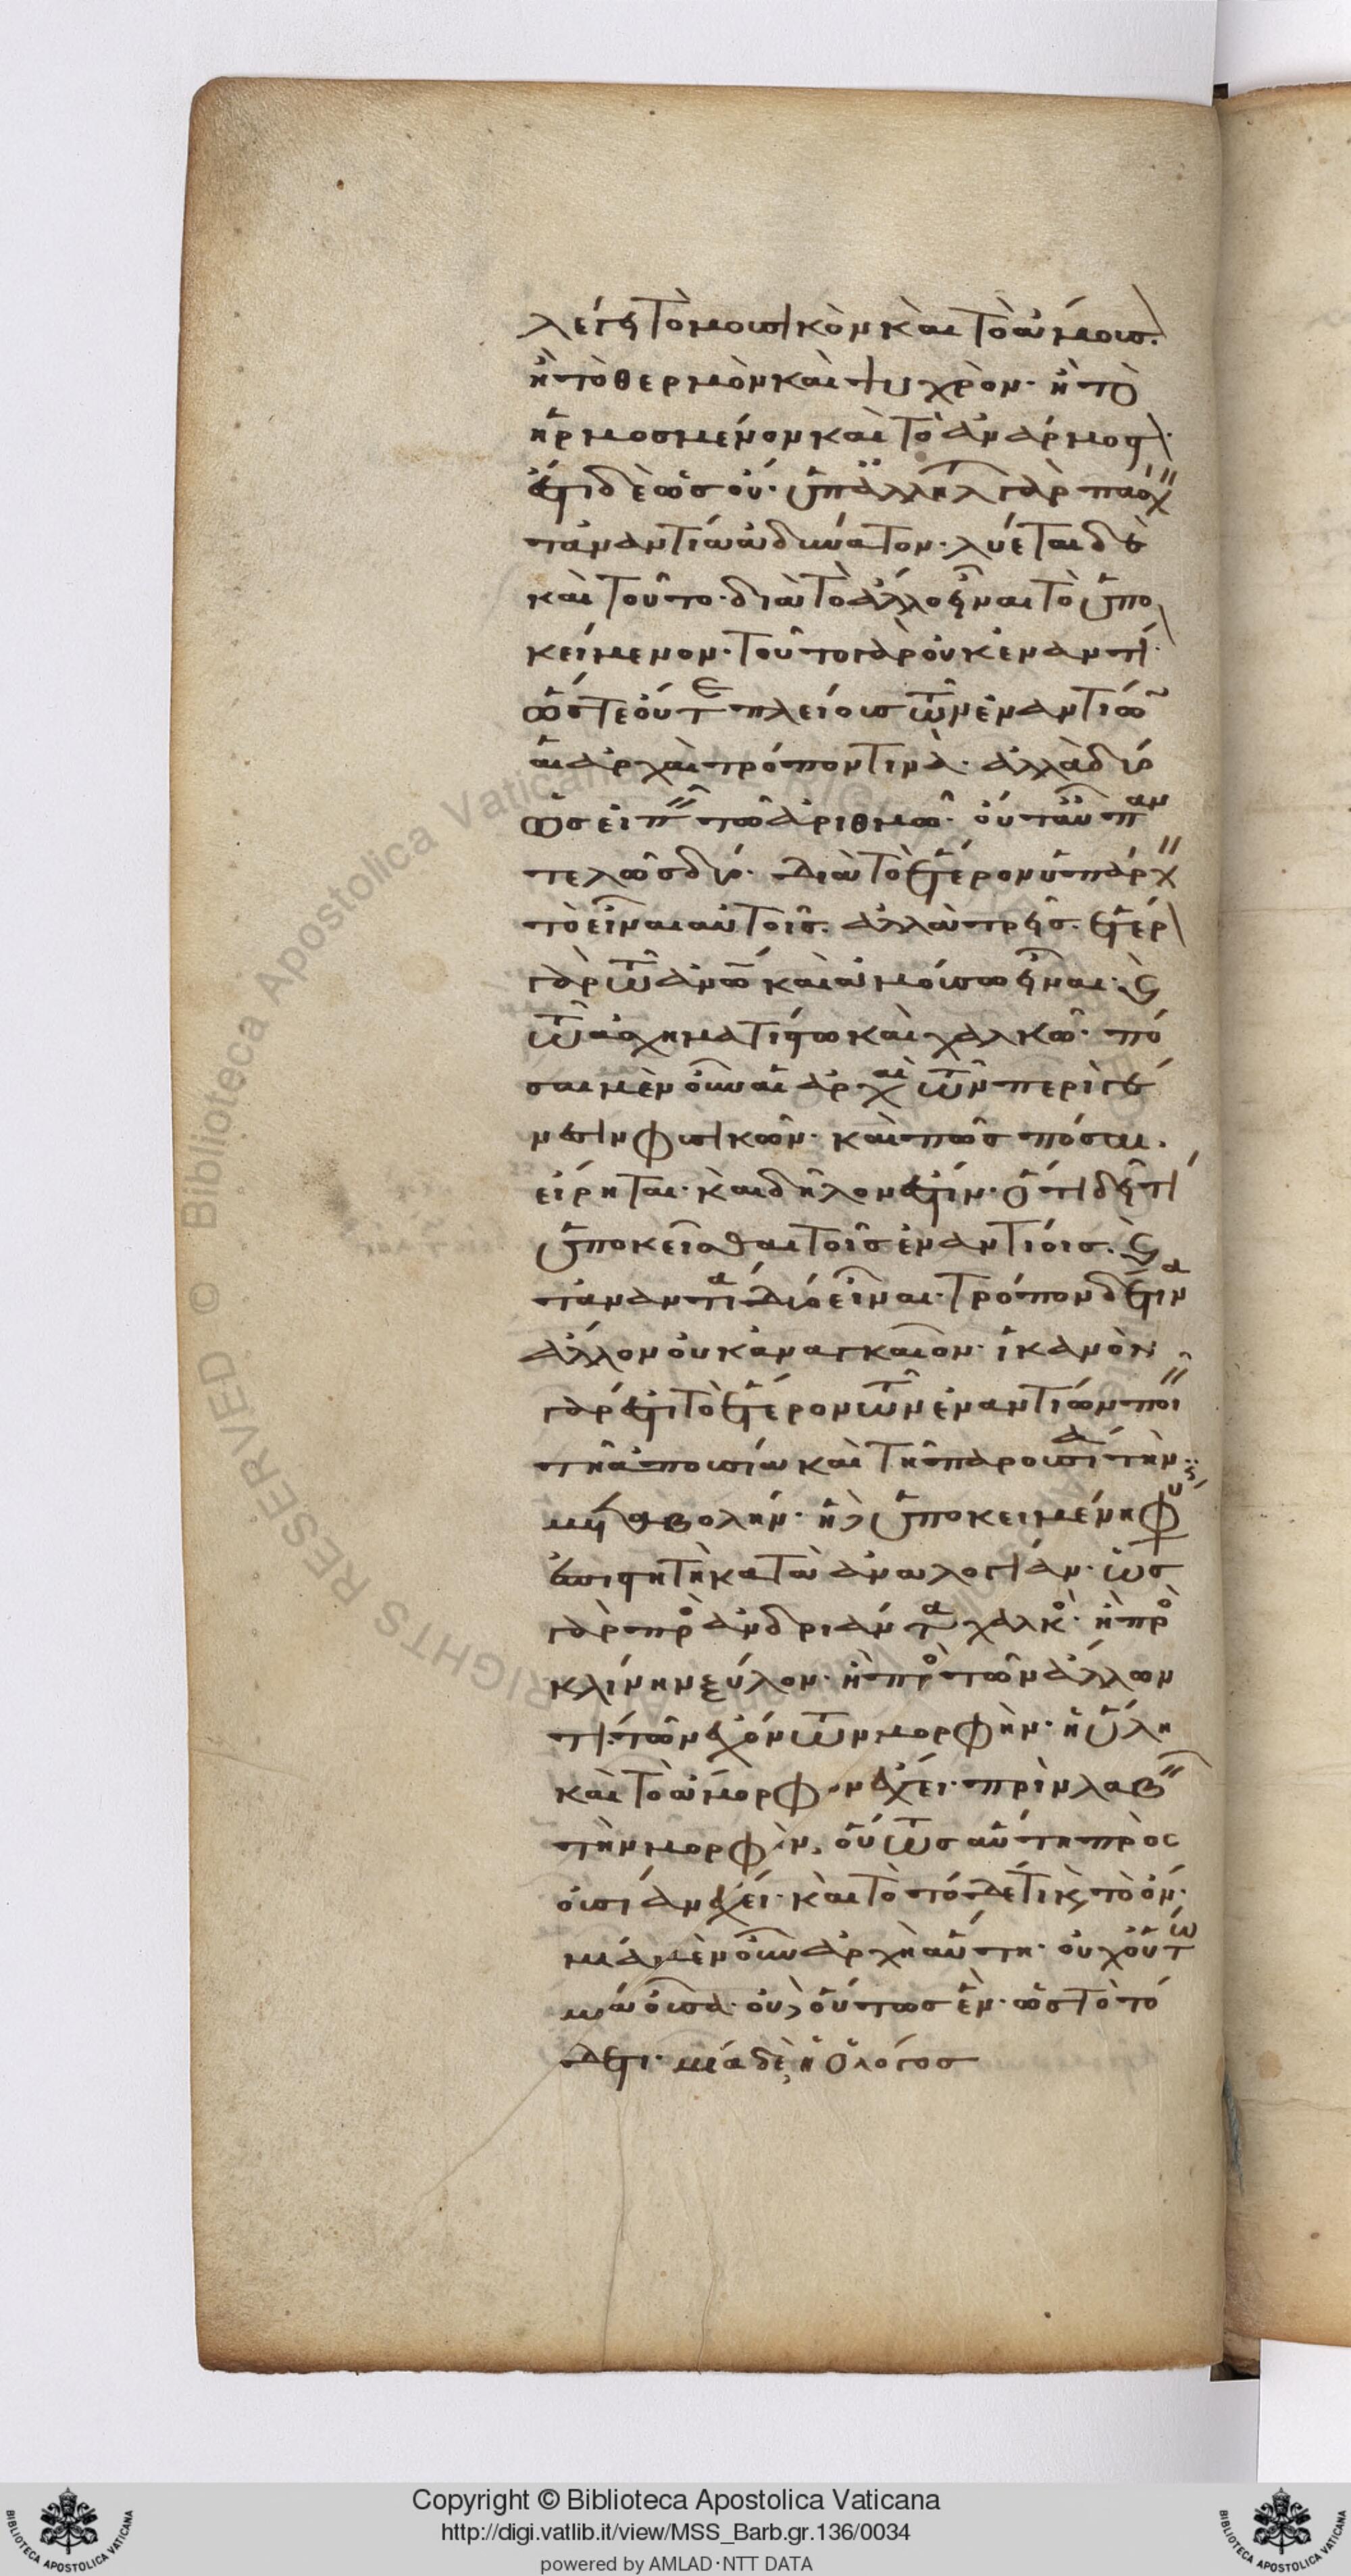 λέγει τὸ μουσικὸν καὶ τὸ ἄμουσ.
ἢ τὸ θερμὸν καὶ ψυχρὸν· ἢ τὸ
ἡρμοσμένον καὶ τὸ ἀνάρμοστ·
ἔστι δὲ ὡς οὔ· ὑπ' ἀλλήλ γὰρ πάσχειν
τἀναντία ἀδύνατον· λύεται δὲ
καὶ τοῦτο· διὰ τὸ ἄλλο εἶναι τὸ ὑπο
κείμενον· τοῦτο γὰρ οὐκ ἐναντί·
ὥστε οὔτε πλείους τῶν ἐναντίων
αἱ ἀρχαὶ τρόπον τινὰ· ἀλλὰ δύο
ὡς εἰπεῖν τῶ ἀριθμῶ· οὔτ' αὖ παν
τελῶς δύο· διὰ τὸ ἕτερον ὑπάρχειν
τὸ εἶναι αὐτοῖς· ἀλλὰ τρεῖς· ἕτερ
γὰρ τὸ ἀνω καὶ ἀμούσω εἶναι· καὶ
τῶ ἀσχηματίστω καὶ χαλκῶ· πό
σαι μὲν οὖν αἱ ἀρχαὶ τῶν περὶ γέ
νεσιν φυσικῶν· καὶ πῶς πόσαι·
εἴρηται· καὶ δῆλόν ἐστιν· ὅτι δεῖ τι
ὑποκεῖσθαι τοῖς ἐναντίοις· καὶ
τἀναντία δύο εἶναι· τρόπον δέ τινα
ἄλλον οὐκ ἀναγκαῖον· ἱκανὸν
γὰρ ἔσται τὸ ἕτερον τῶν ἐναντίων ποιεῖν
τῆ ἀπουσία καὶ τῆ παρουσία τὴν
μεταβολήν· ἡ δ' ὑποκειμένη φύσις
ἐπιστητὴ κατὰ ἀναλογίαν· ὡς
γὰρ πρὸς ἀνδριάντα χαλκὸς· ἢ πρὸς
κλίνην ξύλον· ἢ πρὸς τῶν ἄλλων
τι τῶν ἐχόντων μορφὴν· ἡ ὕλη
καὶ τὸ ἄμορφον ἔχει· πρὶν λαβεῖν
τὴν μορφὴν, οὕτως αὕτη πρὸς
οὐσίαν ἔχει· καὶ τὸ τόδε τι καὶ τὸ ὄν·
μία μὲν οὖν ἀρχὴ αὕτη· οὐχ οὕτω
μία οὖσα· οὐδ' οὕτως ἓν· ὡς τὸ τό
δε τι· μία δὲ, ἧ ὁ λόγος
Copyright © Biblioteca Apostolica Vaticana
http://digi.vatlib.it/view/MSS_Barb.gr.136/0034
powered by AMLAD·NTT DATA